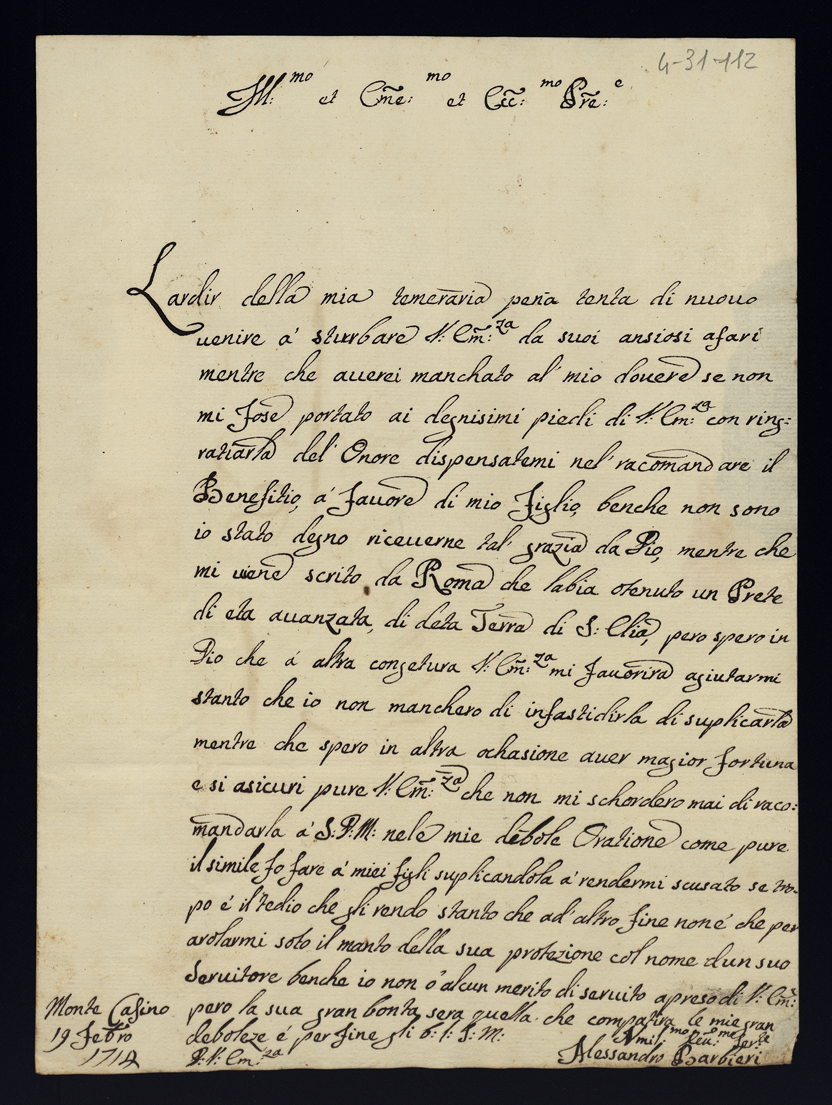 4-31-112
Ill:mo et Em̃e:mo et Ecc:mo Prẽ:e
Lardir della mia temeraria peña tenta di nuouo
uenire á sturbare V: Em̃:za da suoi ansiosi afari
mentre che auerei manchato al' mio douere se non
mi fose portato ai degnisimi piedi di V: Em:za con ring=
ratiarla del' Onore dispensatemi nel' racomandare il
Benefitio, á fauore di mio figlio, benche non sono
io stato degno riceuerne tal' grazia da Dio, mentre che
mi uiene scrito da Roma che labia otenuto un Prete
di eta auanzata, di deta Terra di S: Elia, pero spero in
Dio che á altra congetura V: Em̃:za mi fauorira agiutarmi
stanto che io non manchero di infastidirla di suplicarla
mentre che spero in altra ochasione auer magior fortuna
e si asicuri pure V: Em̃:za che non mi schordero mai di raco:
mandarla á S: D: M: nele mie debole Oratione come pure
il simile fo fare á miei figli suplicandola á rendermi scusato se tro-
po é il tedio che gli rendo stanto che ad' altro fine non é che per
arolarmi soto il manto della sua protezione col nome d'un suo
Seruitore benche io non ó alcun merito di seruito apreso di V: Em̃:
pero la sua gran bonta sera quella che compatira le mie gran
deboleze é per fine gli b: l: S: M:
D: V: Em:za
Monte Casino
19 Febro
1714
Vmil:mo Deu:me Ser:le
Alessandro Barbieri